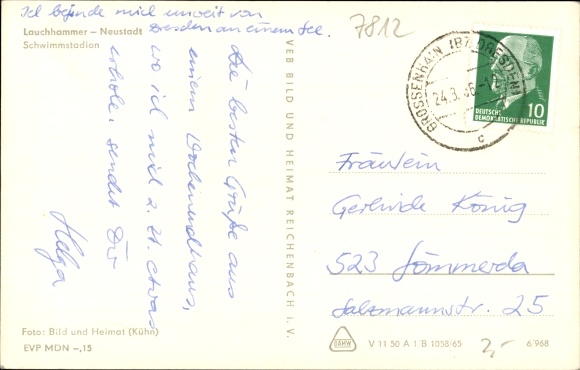 Ich befinde mich unweit von
Dresden an einem See.
Lauchhammer – Neustadt
Schwimmstadion
Die besten Grüße aus
einem Wochenendhaus,
wo ich mich z. Zt. etwas
erhole, sendet Dir
Helga
Foto: Bild und Heimat (Kühn)
EVP MDN –,15
VEB BILD UND HEIMAT REICHENBACH I. V.
7812
GROSSENHAIN (BZ. DRESDEN)
24.3.66
c
10
DEUTSCHE
DEMOKRATISCHE REPUBLIK
Fräulein
Gerlinde König
523 Sömmerda
Salzmannstr. 25
V 11 50 A 1 B 1058/65
2,-
6/968